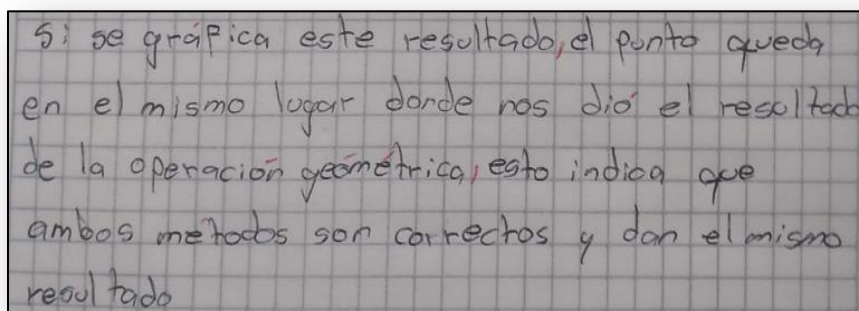 Si se gráfica este resultado, el punto queda
en el mismo lugar donde nos dió el resultado
de la operación geométrica, esto indica que
ambos métodos son correctos y dan el mismo
resultado